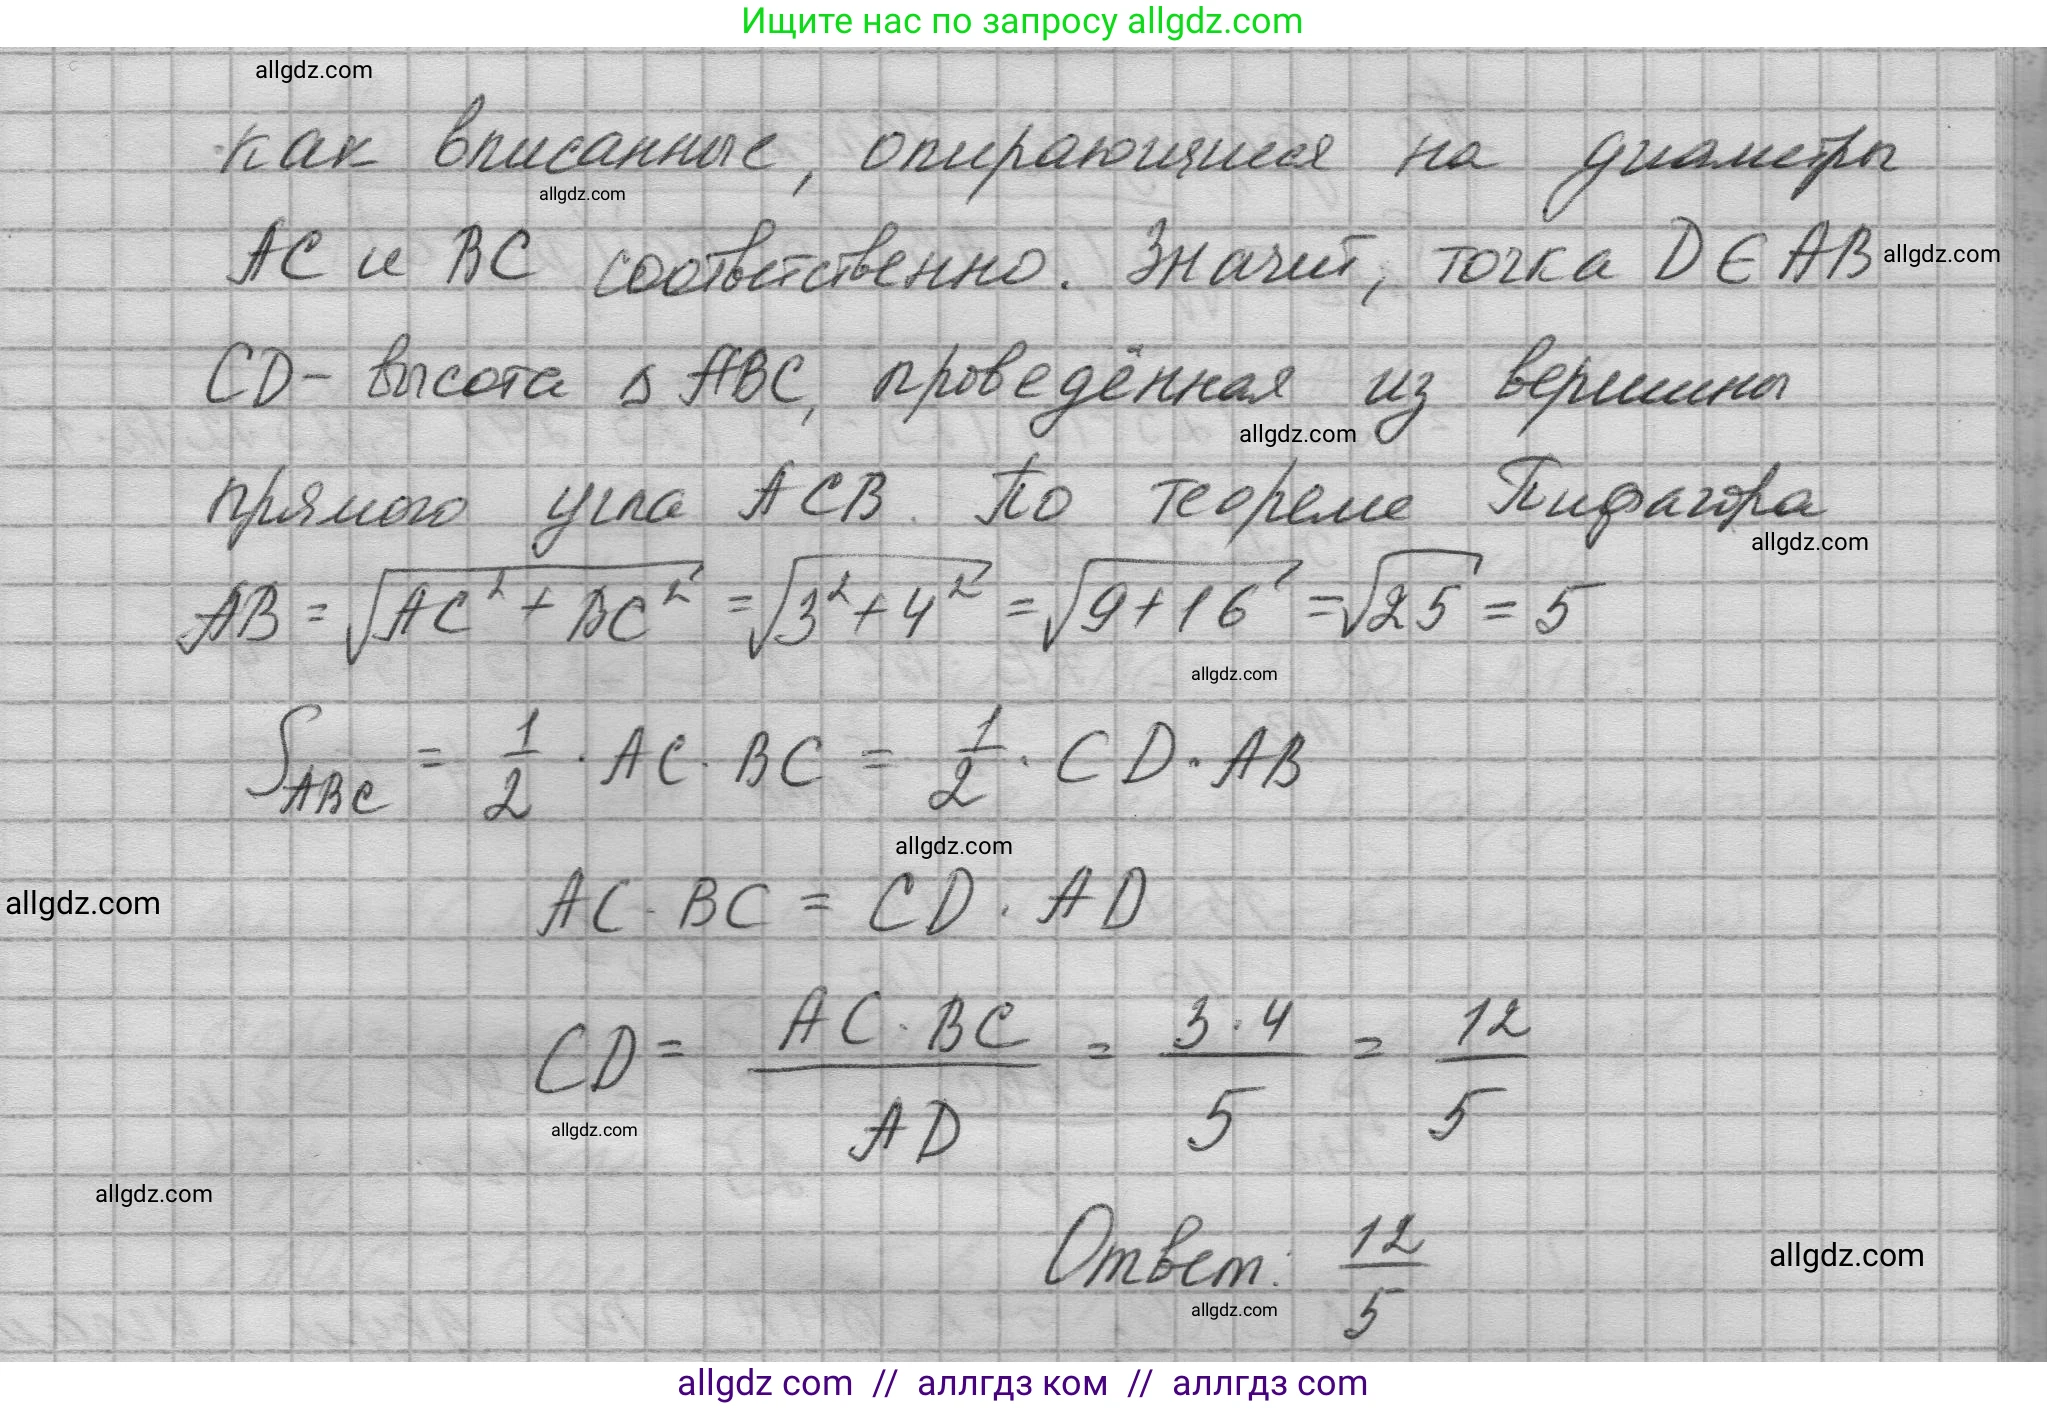 Ищите нас по запросу allgdz.com
allgdz.com
как вписанные, опирающиеся на диаметры
allgdz.com
AC и BC соответственно. Значит, точка D ∈ AB
allgdz.com
CD - высота △ ABC, проведённая из вершины
allgdz.com
прямого угла ACB. По теореме Пифагора
allgdz.com
AB = √(AC² + BC²) = √(3² + 4²) = √(9 + 16) = √25 = 5
allgdz.com
S_ABC = 1/2 · AC · BC = 1/2 · CD · AB
allgdz.com
allgdz.com
AC · BC = CD · AD
CD = (AC · BC)/AD = (3 · 4)/5 = 12/5
allgdz.com
allgdz.com
Ответ: 12/5
allgdz.com
allgdz.com
allgdz com // аллгдз ком // аллгдз com